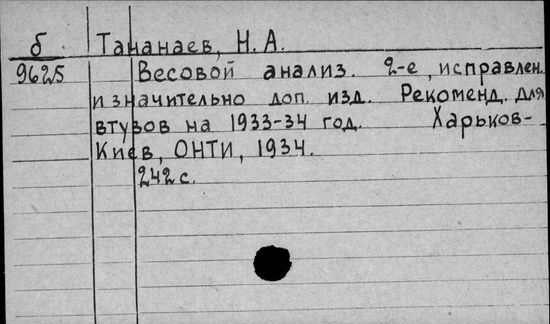 б. Тананаев, Н. А.
9625 Весовой анализ. 2-е, исправлен.
и значительно доп. изд. Рекоменд. для
втузов на 1933-34 год. Харьков-
Киев, ОНТИ, 1934.
242 с.